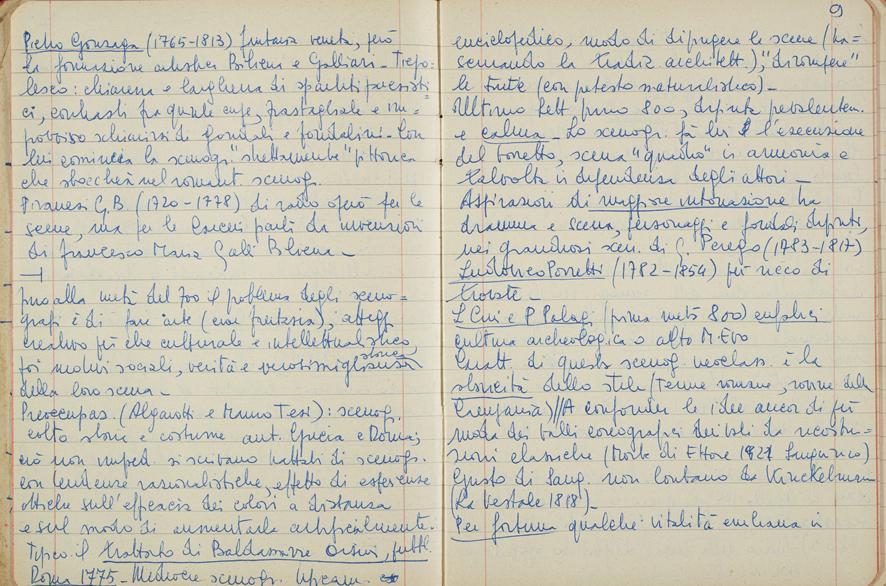 Pietro Gonzaga (1765-1813) fantasia veneta, però
la formazione artistica Bibiena e Galliari - Tiepo-
lesco: chiarezza e larghezza di partiti paesisti-
ci, contrasti fra quinte cupe, frastagliate e im-
provvisi schiarirsi di fondali e fondalini - Con
lui comincia la scenogr. "strettamente" pittorica
che sboccherà nel romant. scenog.
Piranesi G.B. (1720-1778) di rado operò per le
scene, ma per le Carceri partì da invenzioni
di Francesco Maria Galli Bibiena -
fino alla metà del 700 il problema degli sceno-
grafi è di fare arte (cioè fantasia), attegg.
creativo più che culturale e intellettualistico,
poi motivi sociali, verità e verosimiglianza storica
della loro scena -
Preoccupaz. (Algarotti e Mauro Tesi): scenog.
colta storia e costume ant. Grecia e Roma;
ciò non imped. si scrivano trattati di scenogr.
con tendenze razionalistiche, effetto di esperienze
ottiche sull'efficacia dei colori a distanza
e sul modo di aumentarla artificialmente.
Tipico il trattato di Baldassarre Orsini, pubbl.
Roma 1775 - Mediocre scenogr.
9
enciclopedico, modo di dipingere le scene (la-
sciando la tradiz. architett.), "dirompere"
le tinte (con pretesto naturalistico) -
Ultimo sett. primo 800, dipinta prevalentem.
e calma - Lo scenogr. fa lui l'esecuzione
del bozzetto, scena "quadro" in armonia e
talvolta in dipendenza degli attori -
Aspirazioni di maggiore intonazione tra
dramma e scena, personaggi e fondali dipinti,
nei grandiosi scen. di G. Perego (1783-1817)
Ludovico Porretti (1782-1854) più ricco di
trovate -
e P Palagi (prima metà 800)
cultura archeologica o alto M.Evo
Caratt. di questa scenog. neoclass. è la
storicità dello stile (Terme romane, rovine della
) // A confonder le idee ancor di più
moda dei balli coreografici derivati da ricostru-
zioni classiche (Morte di Ettore 1821 Sanquirico)
Gusto di Sanq. non lontano da Winckelmann
(La Vestale 1818) -
Per fortuna qualche vitalità emiliana in